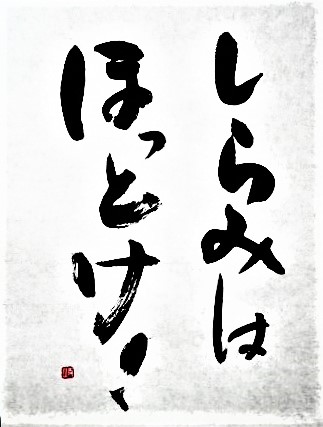 しらみは
ほっとけ!